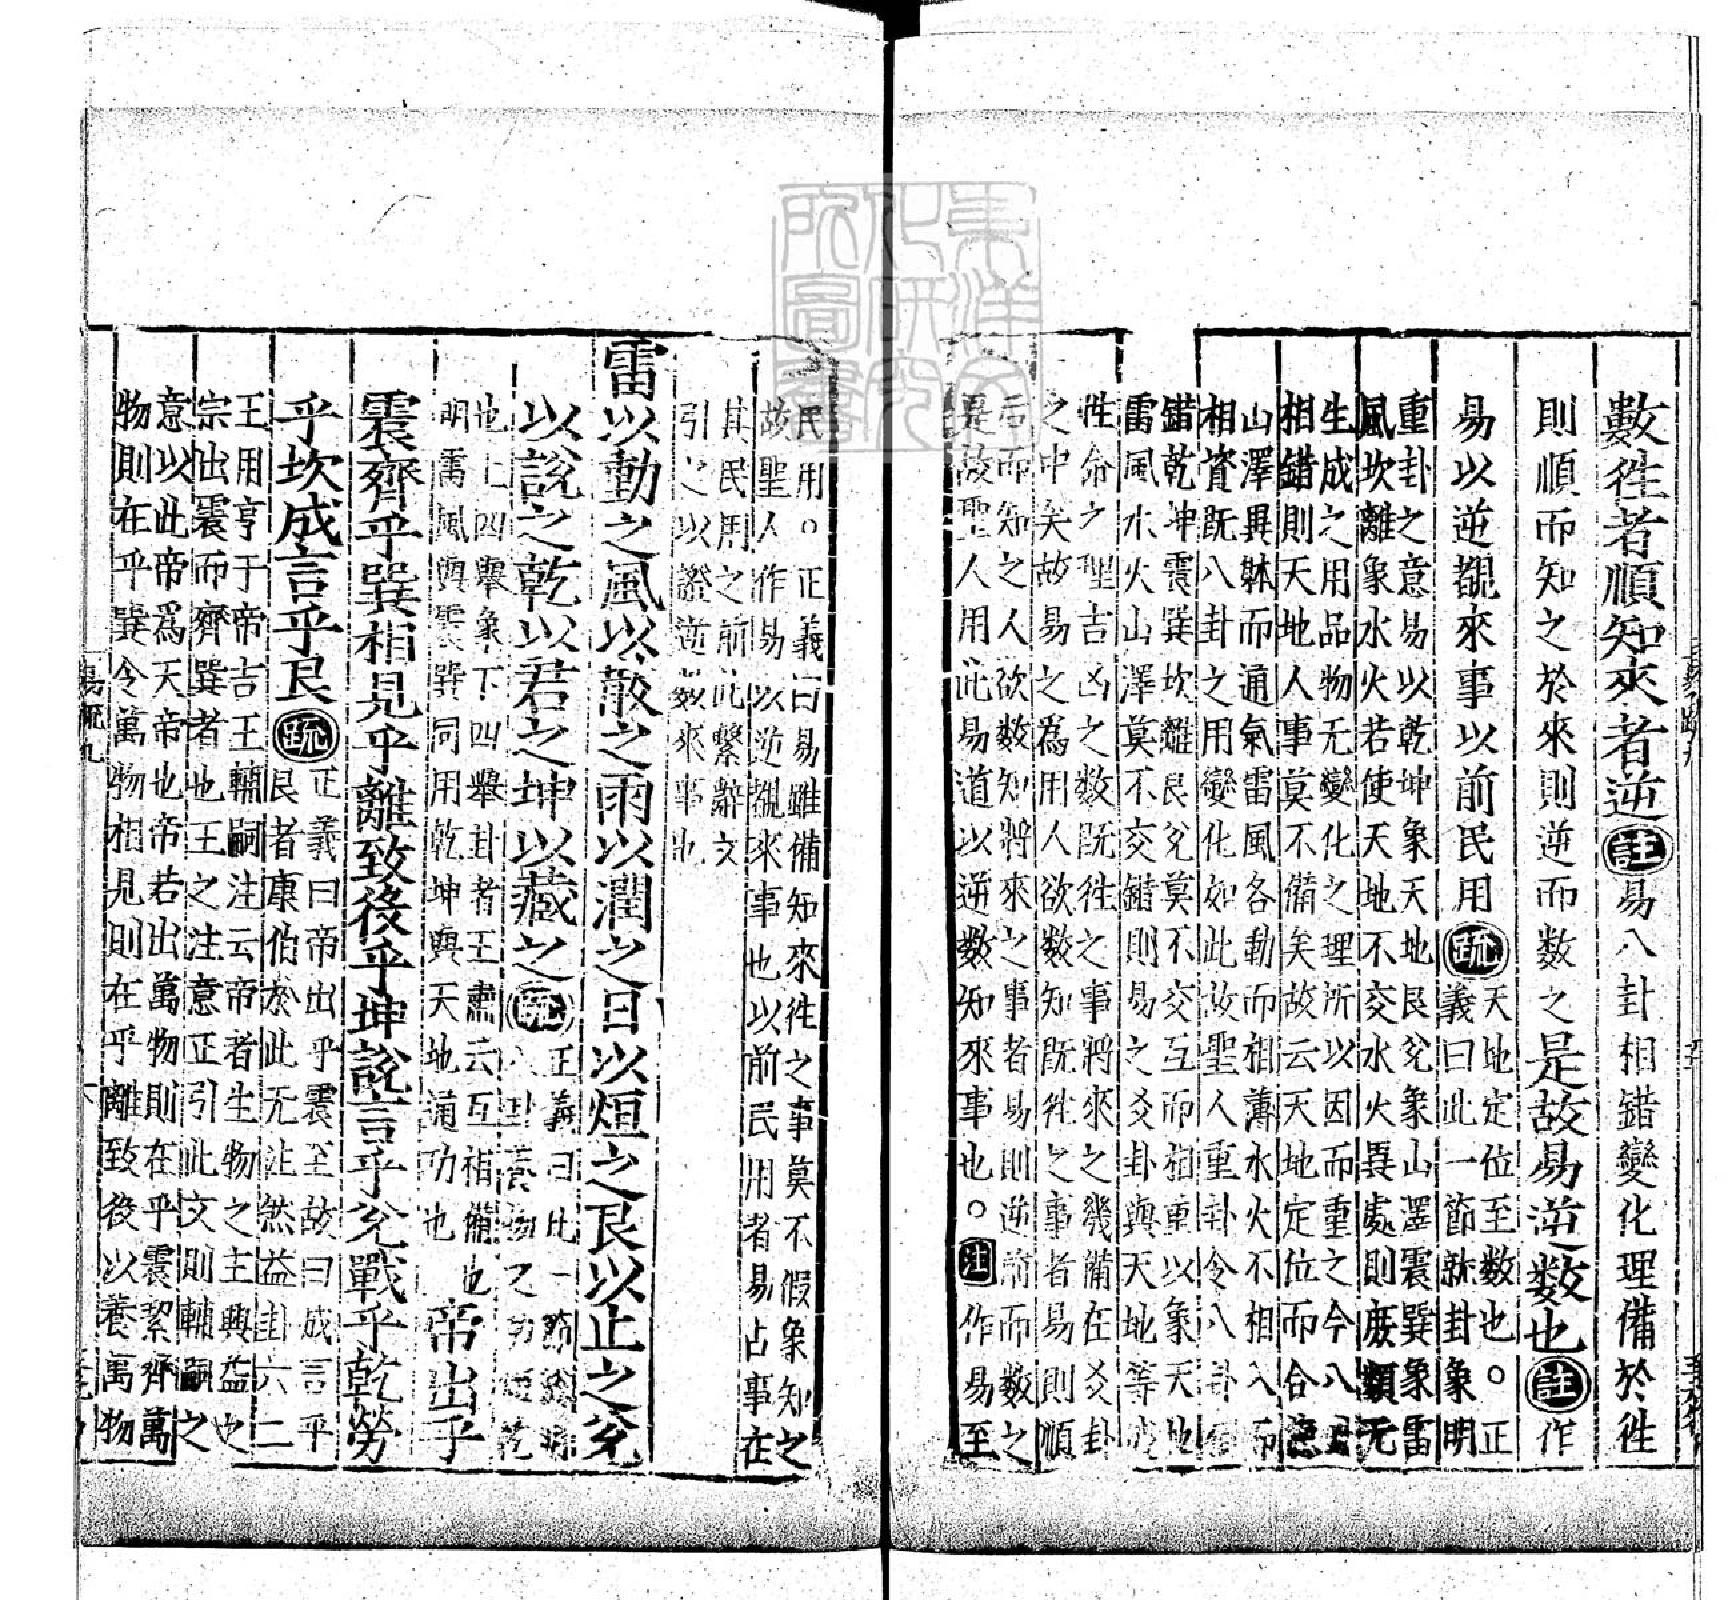 數徃者順知來者逆註易八卦相錯變化理備於徃
則順而知之於來則逆而数之是故易逆数也註作
易以逆覩來事以前民用疏天地定位至数也○正
義曰此一節就卦象明
重卦之意易以乾坤象天地艮兌象山澤震巽象雷
風坎離象水火若使天地不交水火異處則庻類无
生成之用品物无變化之理所以因而重之今八
相錯則天地人事莫不備矣故云天地定位而合
山澤異躰而通氣雷風各動而相薄水火不相入而
相資既八卦之用變化如此故聖人重卦令八卦
錯乾坤震巽坎離艮兌莫不交互而相重以象天地
雷風水火山澤莫不交錯則易之爻卦與天地等
性命之理吉凶之数既徃之事將來之幾備在爻卦
之中矣故易之為用人欲数知既徃之事者易則順
后而知之人欲数知將來之事者易則逆前而数之
是故聖人用此易道以逆数知來事也○注作易至
民用○正義曰易雖備知來徃之事莫不假象知之
故聖人作易以逆覩來事也以前民用者易占事在
其民用之前此繫辭文
引之以證逆数來事也
雷以動之風以散之雨以潤之日以烜之艮以止之兌
以說之乾以君之坤以藏之疏正義曰此一節
八卦養物之功
也上四舉象下四舉卦者王肅云互相備也
明雷風與震巽同用乾坤與天地通功也帝出乎
震齊乎巽相見乎離致役乎坤說言乎兌戰乎乾勞
乎坎成言乎艮疏正義曰帝出乎震至故曰成言乎
艮者康伯於此无注然益卦六二
王用亨于帝吉王輔嗣注云帝者生物之主興益之
宗出震而齊巽者也王之注意正引此文則輔嗣之
意以此帝爲天帝也帝若出萬物則在乎震絜齊萬
物則在乎巽令萬物相見則在乎離致役以養萬物
易疏九